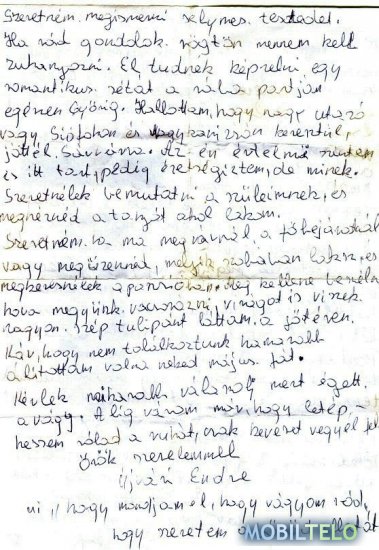 Szeretném megismerni selymes testedet.
Ha rád gondolok rögtön mennem kell
zuhanyozni. El tudnék képzelni egy
romantikus sétát a rába partján
egészen Győrig. Hallottam, hogy nagy utazó
vagy Siófokon és nagykanizsán keresztül
jöttél Sárvárra. Az én értelmi szintem
és itt tart, pedig érettségiztem, de minek.
Szeretnélek bemutatni a szüleimnek, és
megnéznéd a tanyát ahol lakom.
Szeretném ha ma megvárnál a főbejáratnál
vagy megüzennéd, melyik szobában laksz, és
megkeresnélek a portán. Meg kellene beszélni
hova megyünk vacsorázni, virágot is viszek
nagyon szép tulipánt láttam a főtéren.
Kár, hogy nem találkoztunk hamarabb
állítottam volna neked május fát.
Kérlek mihamarabb válaszolj mert éget
a vágy. Alig várom már, hogy letép-
hessem rólad a ruhát, csak keveset vegyél fel
Örök szerelemmel
Újvári Endre
ui „hogy mondjam el, hogy vágyom rád,
hogy szeretem
MOBILTELO